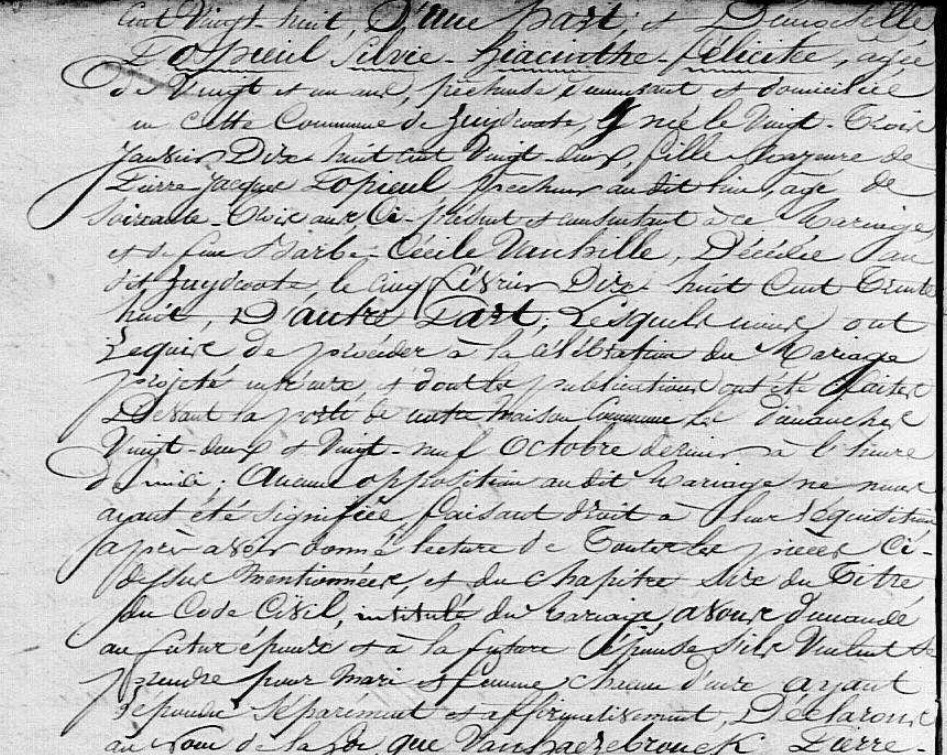 Cent Vingt-huit, D'une Part, et Demoiselle
Topieul Silvie-Hiacinthe-félicité, agée
de Vingt et un ans, pècheuse, demeurant et domiciliée
en cette Commune de Zuydcoote, y née le Vingt-Trois
Janvier Dix-huit cent Vingt-deux, fille Majeure de
Pierre-Jacques Topieul pècheur au dit lieu, agé de
Soixante-trois ans, Ci-présent et consentant à ce Mariage,
et de feue Barbe-Cécile Vanhille, Décédée au
dit Zuydcoote, le Cinq février Dix-huit Cent Trente
huit, D'autre Part; Lesquels nous ont
requis de procéder à la célébration du Mariage
projeté entr'eux, et dont les publications ont été faites
Devant la porte de notre Maison Commune Les Dimanches
Vingt-deux et Vingt-neuf Octobre dernier à l'heure
de midi; Aucune opposition au dit Mariage ne nous
ayant été signifiée, faisant droit à leur réquisition
après avoir donné lecture de Toutes les pièces Ci-
dessus Mentionnées, et du chapitre Six du Titre
du Code Civil, intitulé du Mariage, avons demandé
au futur époux et à la future épouse s'ils Veulent se
prendre pour Mari et femme, chacun d'eux ayant
répondu Séparément et affirmativement, Déclarons
au Nom de la Loi, que Vanhaezebrouck Pierre-